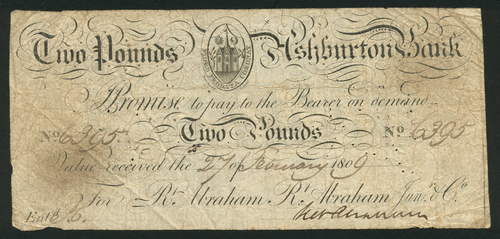 Two Pounds Ashburton Bank
I Promise to pay to the Bearer on demand
No 6395 Two Pounds No 6395
Value received the 27 of February 1809
For Rt. Abraham, Rt. Abraham Junr. & Co.
Entd.